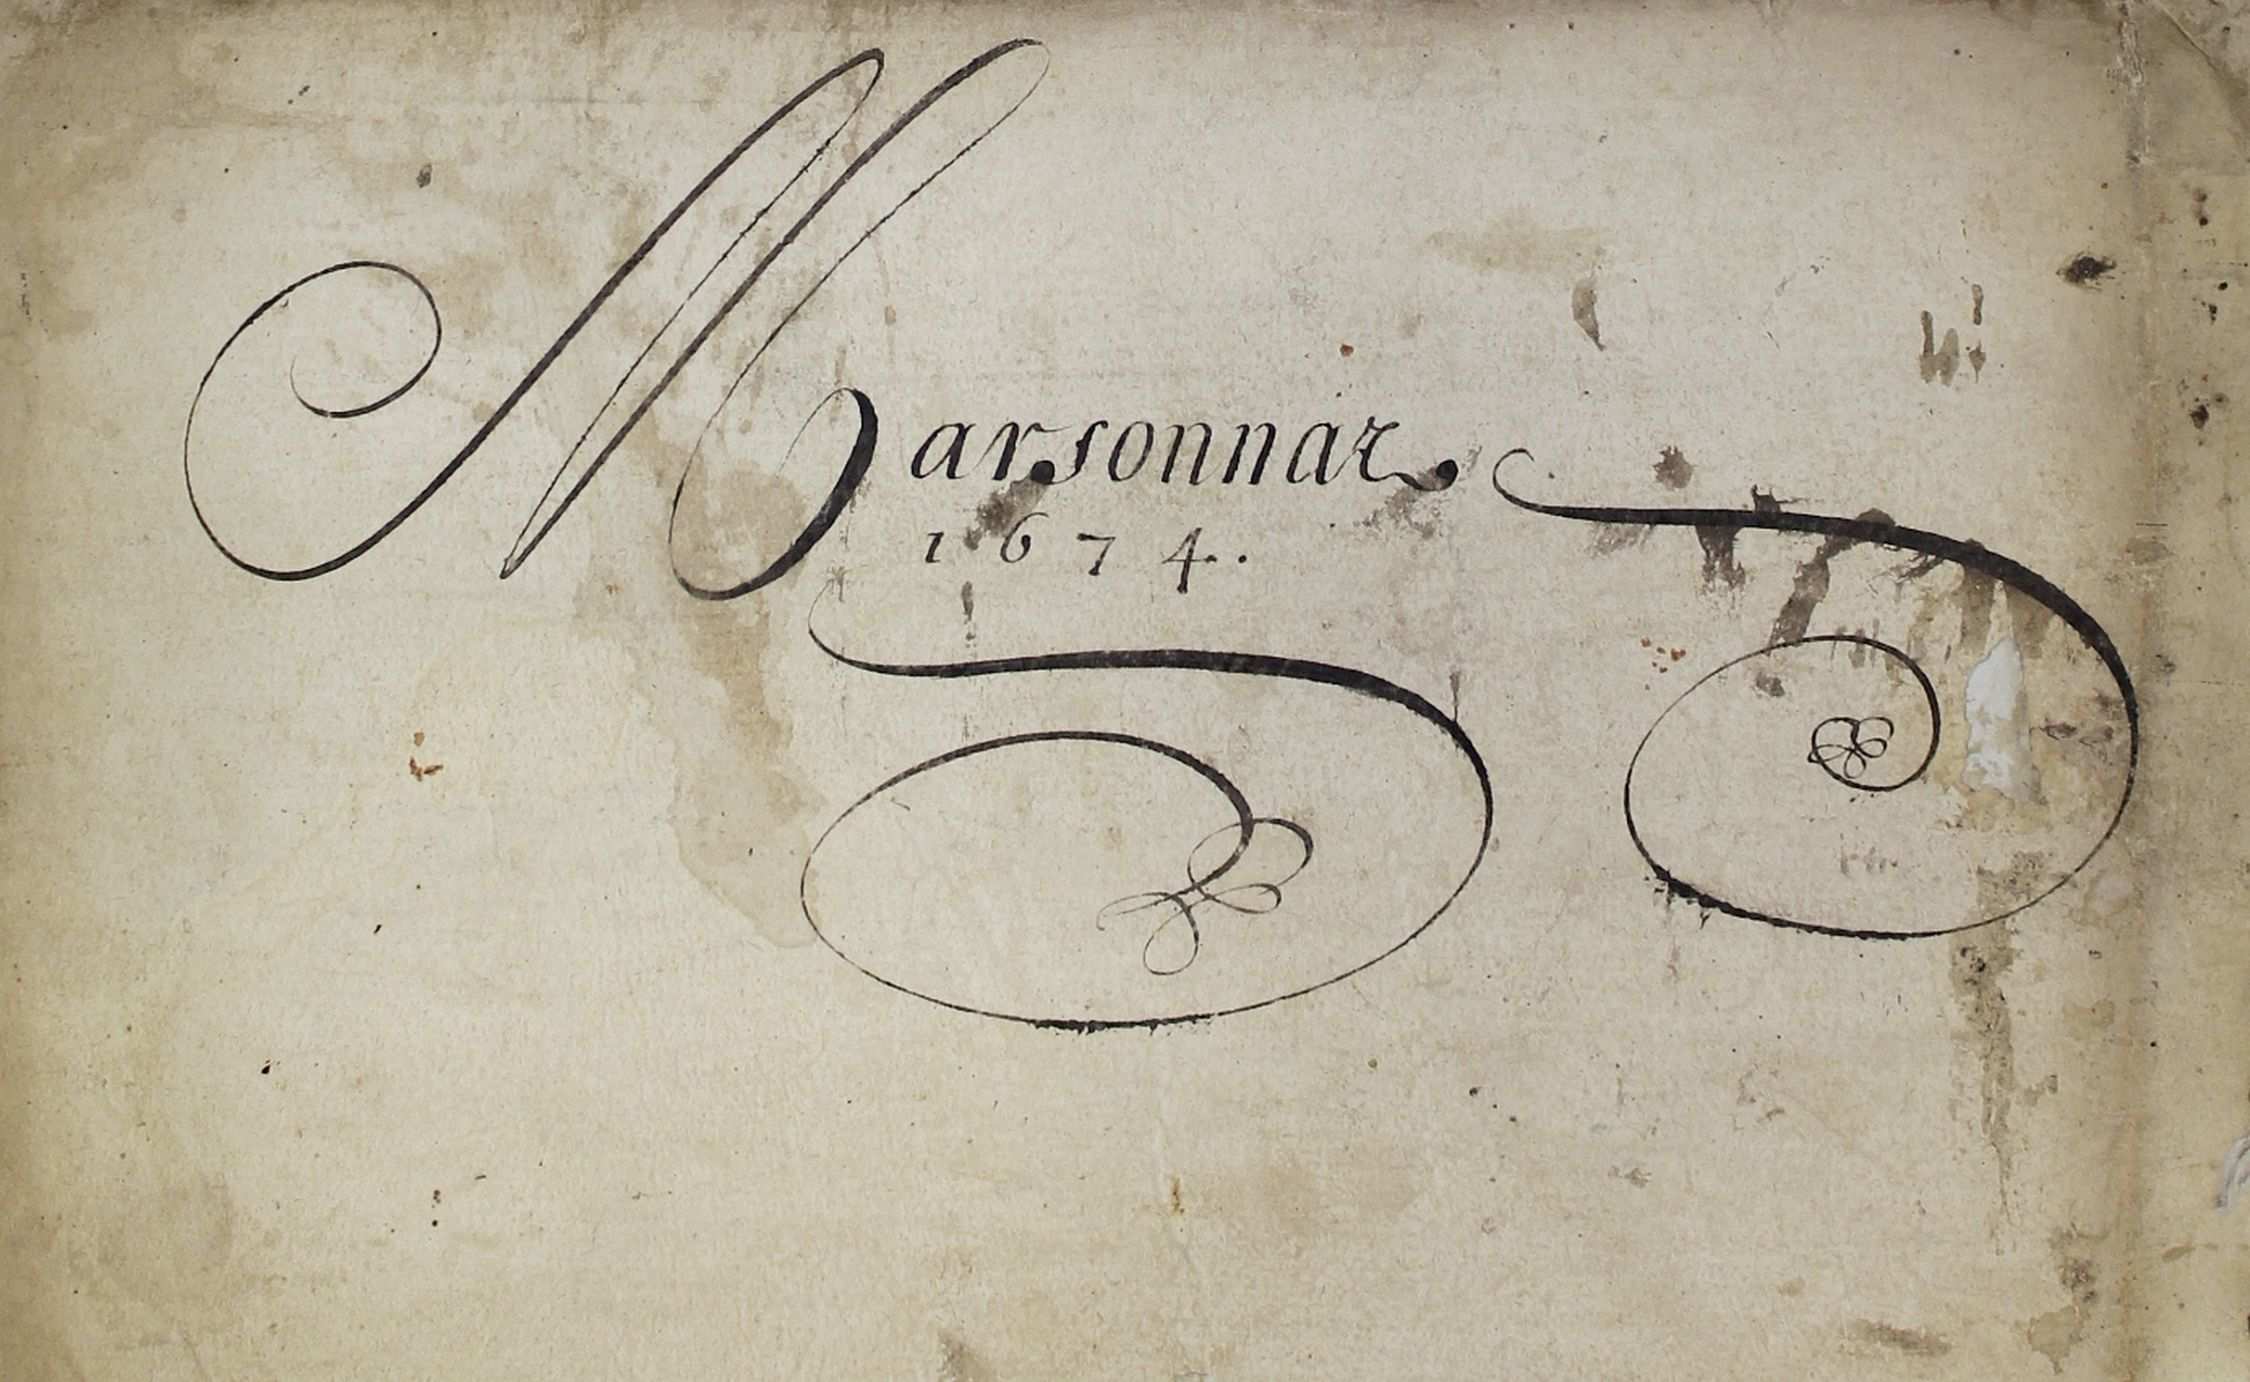 Marsonnar
1674.